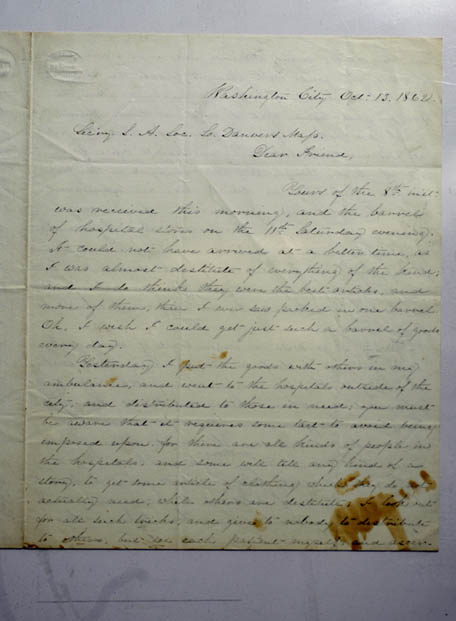 Washington City Oct. 13. 1862.
Sec'ry S. A. Soc. So. Danvers Mass.
Dear Friend,
Yours of the 8th inst.
was received this morning, and the barrel
of hospital stores on the 11th Saturday evening.
It could not have arrived at a better time, as
I was almost destitute of everything of the kind,
and I do think they were the best articles, and
more of them, than I ever saw packed in one barrel.
Oh, I wish I could get just such a barrel of goods
every day.
Yesterday I put the goods with others in my
ambulance, and went to the hospitals outside of the
city, and distributed to those in need, you must
be aware that it requires some tact to avoid being
imposed upon. for there are all kinds of people in
the hospitals, and some will tell any kind of a
story, to get some article of clothing which they do not
actually need, while others are destitute. I look out
for all such tricks, and give to nobody to distribute
to others, but see each patient myself, and ascer-